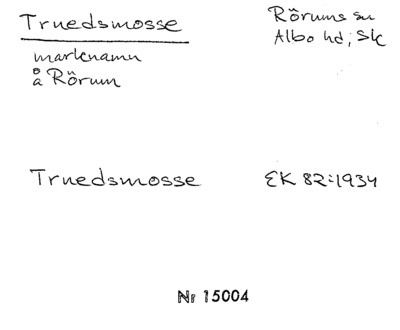 Truedsmosse
Rörums sn
Albo hd; Sk
marknamn
å Rörum
Truedsmosse
EK 82:1934
Nr 15004